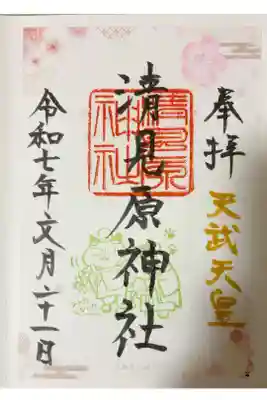 奉拝
天武天皇
清見原神社
令和七年文月二十一日
清見原神社